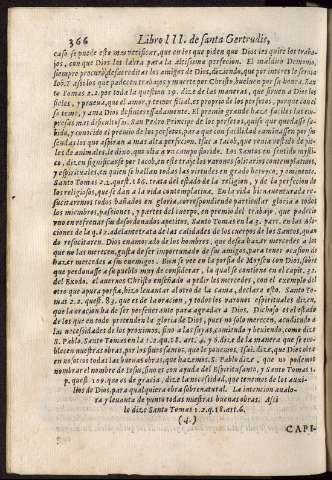 366 Libro III. de santa Gertrudis,
caso se puede esto mas verificar, que en los que piden que Dios les quite los trabajos
, con que Dios los labra para la Altissima perfecion. El maldito Demonio,
siempre procurò desacreditar los amigos de Dios, diziendo, que por interes le servia
Iob, y assi los que padecen trabajos, y muerte por Christo, buelven por su honra. San
to Tomas 2.2. por toda la question 19. dize de las maneras, que sirven a Dios los
fieles, y prueva, que el amor, y temor filial, es proprio de los perfetos, porque con el
se teme, y ama Dios
presas mas dificultosas. San Pedro Principe de los perfetos, quiso que quedasse sabido
, y conocido el premio de los perfetos, para que con facilidad caminassen por sus
huellas los que aspiran a mas alta perfecion. Isac a Iacob, que venia vestido de pieles
de animales, le dixo, que olia a un campo florido. Los Santos en sentido mistico
, dizen significarse por Iacob, en este traje los varones solitarios contemplativos,
y espirituales, en quien se hallan todas las virtudes en grado heroyco, y iminente.
Santo Tomas 2.2. quest. 186. trata del estado de la religion, y de la perfecion de
los religiosos, que se dan a la vida contemplativa. En la vida bienaventurada resucitaremos
todos bañados en gloria, correspondiendo particular gloria a todos
los miembros, passiones, y partes del cuerpo, en premio del trabajo que padecieron
en refrenar sus desordenados apetitos, Santo Tomas en la 3. part. en las Adiciones
de la q. 82. adelante trata de las calidades de los cuerpos de los Santos, quando
resucitaren. Dios enamorado de los hombres, que desea hazer mercedes a los
que no las merecen, gusta de ser importunado de sus amigos, para tener ocasion de
hazer mercedes a sus enemigos. Bien se vee en la porfia de Moysen con Dios, sobre
que perdonasse a su pueblo muy de considerar, la qual se contiene en el capit. 32.
del Exodo. El nuestro Christo enseñado a pedir les mercedes, con el exemplo del
otro que a pura porfia, hizo levantar al otro de la cama, declara esto. Santo Tomas
2.2. quest. 83. que es de la oracion, y todos los varones espirituales dizen,
que la oracion ha de ser perseverante para agradar a Dios. Dichoso es el estado
de los que en todo pretenden la gloria de Dios, pues no solo merecen, acudiendo a
las necessidades de los proximos, sino a las suyas, comiendo y beviendo, como dize
S. Pablo. Santo Tomas en la 1.2. q. 18. art. 4. y 6. dize de la manera que se ennoblecen
nuestras obras, por los buenos fines, que se proponen, essi dize, que Dios obra
en nosotros todas las buenas obras, que hazemos. S. Pablo dize, que no podemos
nombrar el nombre de Iesus, sino es con ayuda del Espiritu santo, y Santo Tomas 1.
p. quest. 109. que es de gracia, dize la necessidad, que tenemos de los auxilios
de Dios, para qualquiera obra sobrenatural. La intencion avalora
y levanta de punto todas nuestras buenas obras. Assi
lo dize Santo Tomas 1.2. q. 18. art. 6.
(.?.)
CAPI-